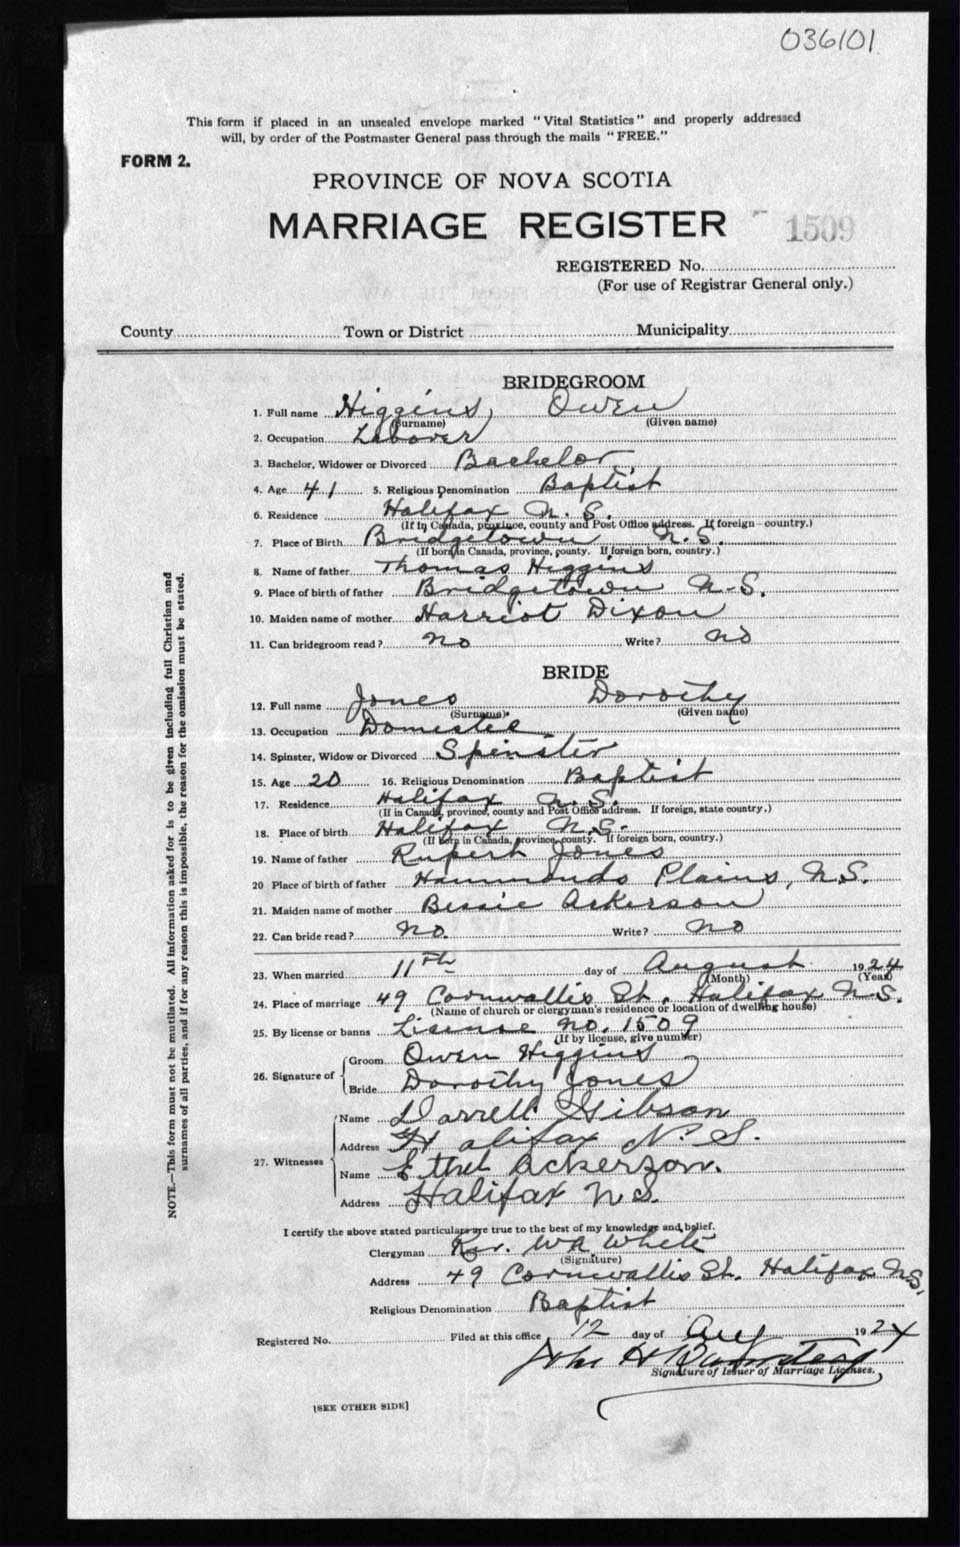 036101
This form if placed in an unsealed envelope marked "Vital Statistics" and properly addressed
will, by order of the Postmaster General pass through the mails "FREE."
FORM 2.
PROVINCE OF NOVA SCOTIA
MARRIAGE REGISTER 1509
REGISTERED No.
(For use of Registrar General only.)
County Town or District Municipality
BRIDEGROOM
1. Full name Higgins, Owen
(Surname) (Given name)
2. Occupation Laborer
3. Bachelor, Widower or Divorced Bachelor
4. Age 41 5. Religious Denomination Baptist
6. Residence Halifax N.S.
(If in Canada, province, county and Post Office address. If foreign—country.)
7. Place of Birth Bridgetown N.S.
(If born in Canada, province, county. If foreign born, country.)
8. Name of father Thomas Higgins
9. Place of birth of father Bridgetown N.S.
10. Maiden name of mother Harriot Dixon
11. Can bridegroom read? No Write? No
BRIDE
12. Full name Jones Dorothy
(Surname) (Given name)
13. Occupation Domestic
14. Spinster, Widow or Divorced Spinster
15. Age 20 16. Religious Denomination Baptist
17. Residence Halifax N.S.
(If in Canada, province, county and Post Office address. If foreign, state country.)
18. Place of birth Halifax N.S.
(If born in Canada, province, county. If foreign born, country.)
19. Name of father Rupert Jones
20 Place of birth of father Hammonds Plains, N.S.
21. Maiden name of mother Bessie Ackerson
22. Can bride read? No. Write? No
23. When married 11th day of August 1924
(Month) (Year)
24. Place of marriage 49 Cornwallis St. Halifax N.S.
(Name of church or clergyman's residence or location of dwelling house)
25. By license or banns License No. 1509
(If by license, give number)
26. Signature of Groom Owen Higgins
Bride Dorothy Jones
27. Witnesses Name Darrell Gibson
Address Halifax N.S.
Name Ethel Ackerson.
Address Halifax N S.
I certify the above stated particulars are true to the best of my knowledge and belief.
Clergyman Rev. W A White
(Signature)
Address 49 Cornwallis St. Halifax N.S.
Religious Denomination Baptist
Registered No. Filed at this office 12 day of Aug 1924
John H
Signature of Issuer of Marriage Licenses.
[SEE OTHER SIDE]
NOTE.—This form must not be mutilated. All information asked for is to be given including full Christian and
surnames of all parties, and if for any reason this is impossible, the reason for the omission must be stated.